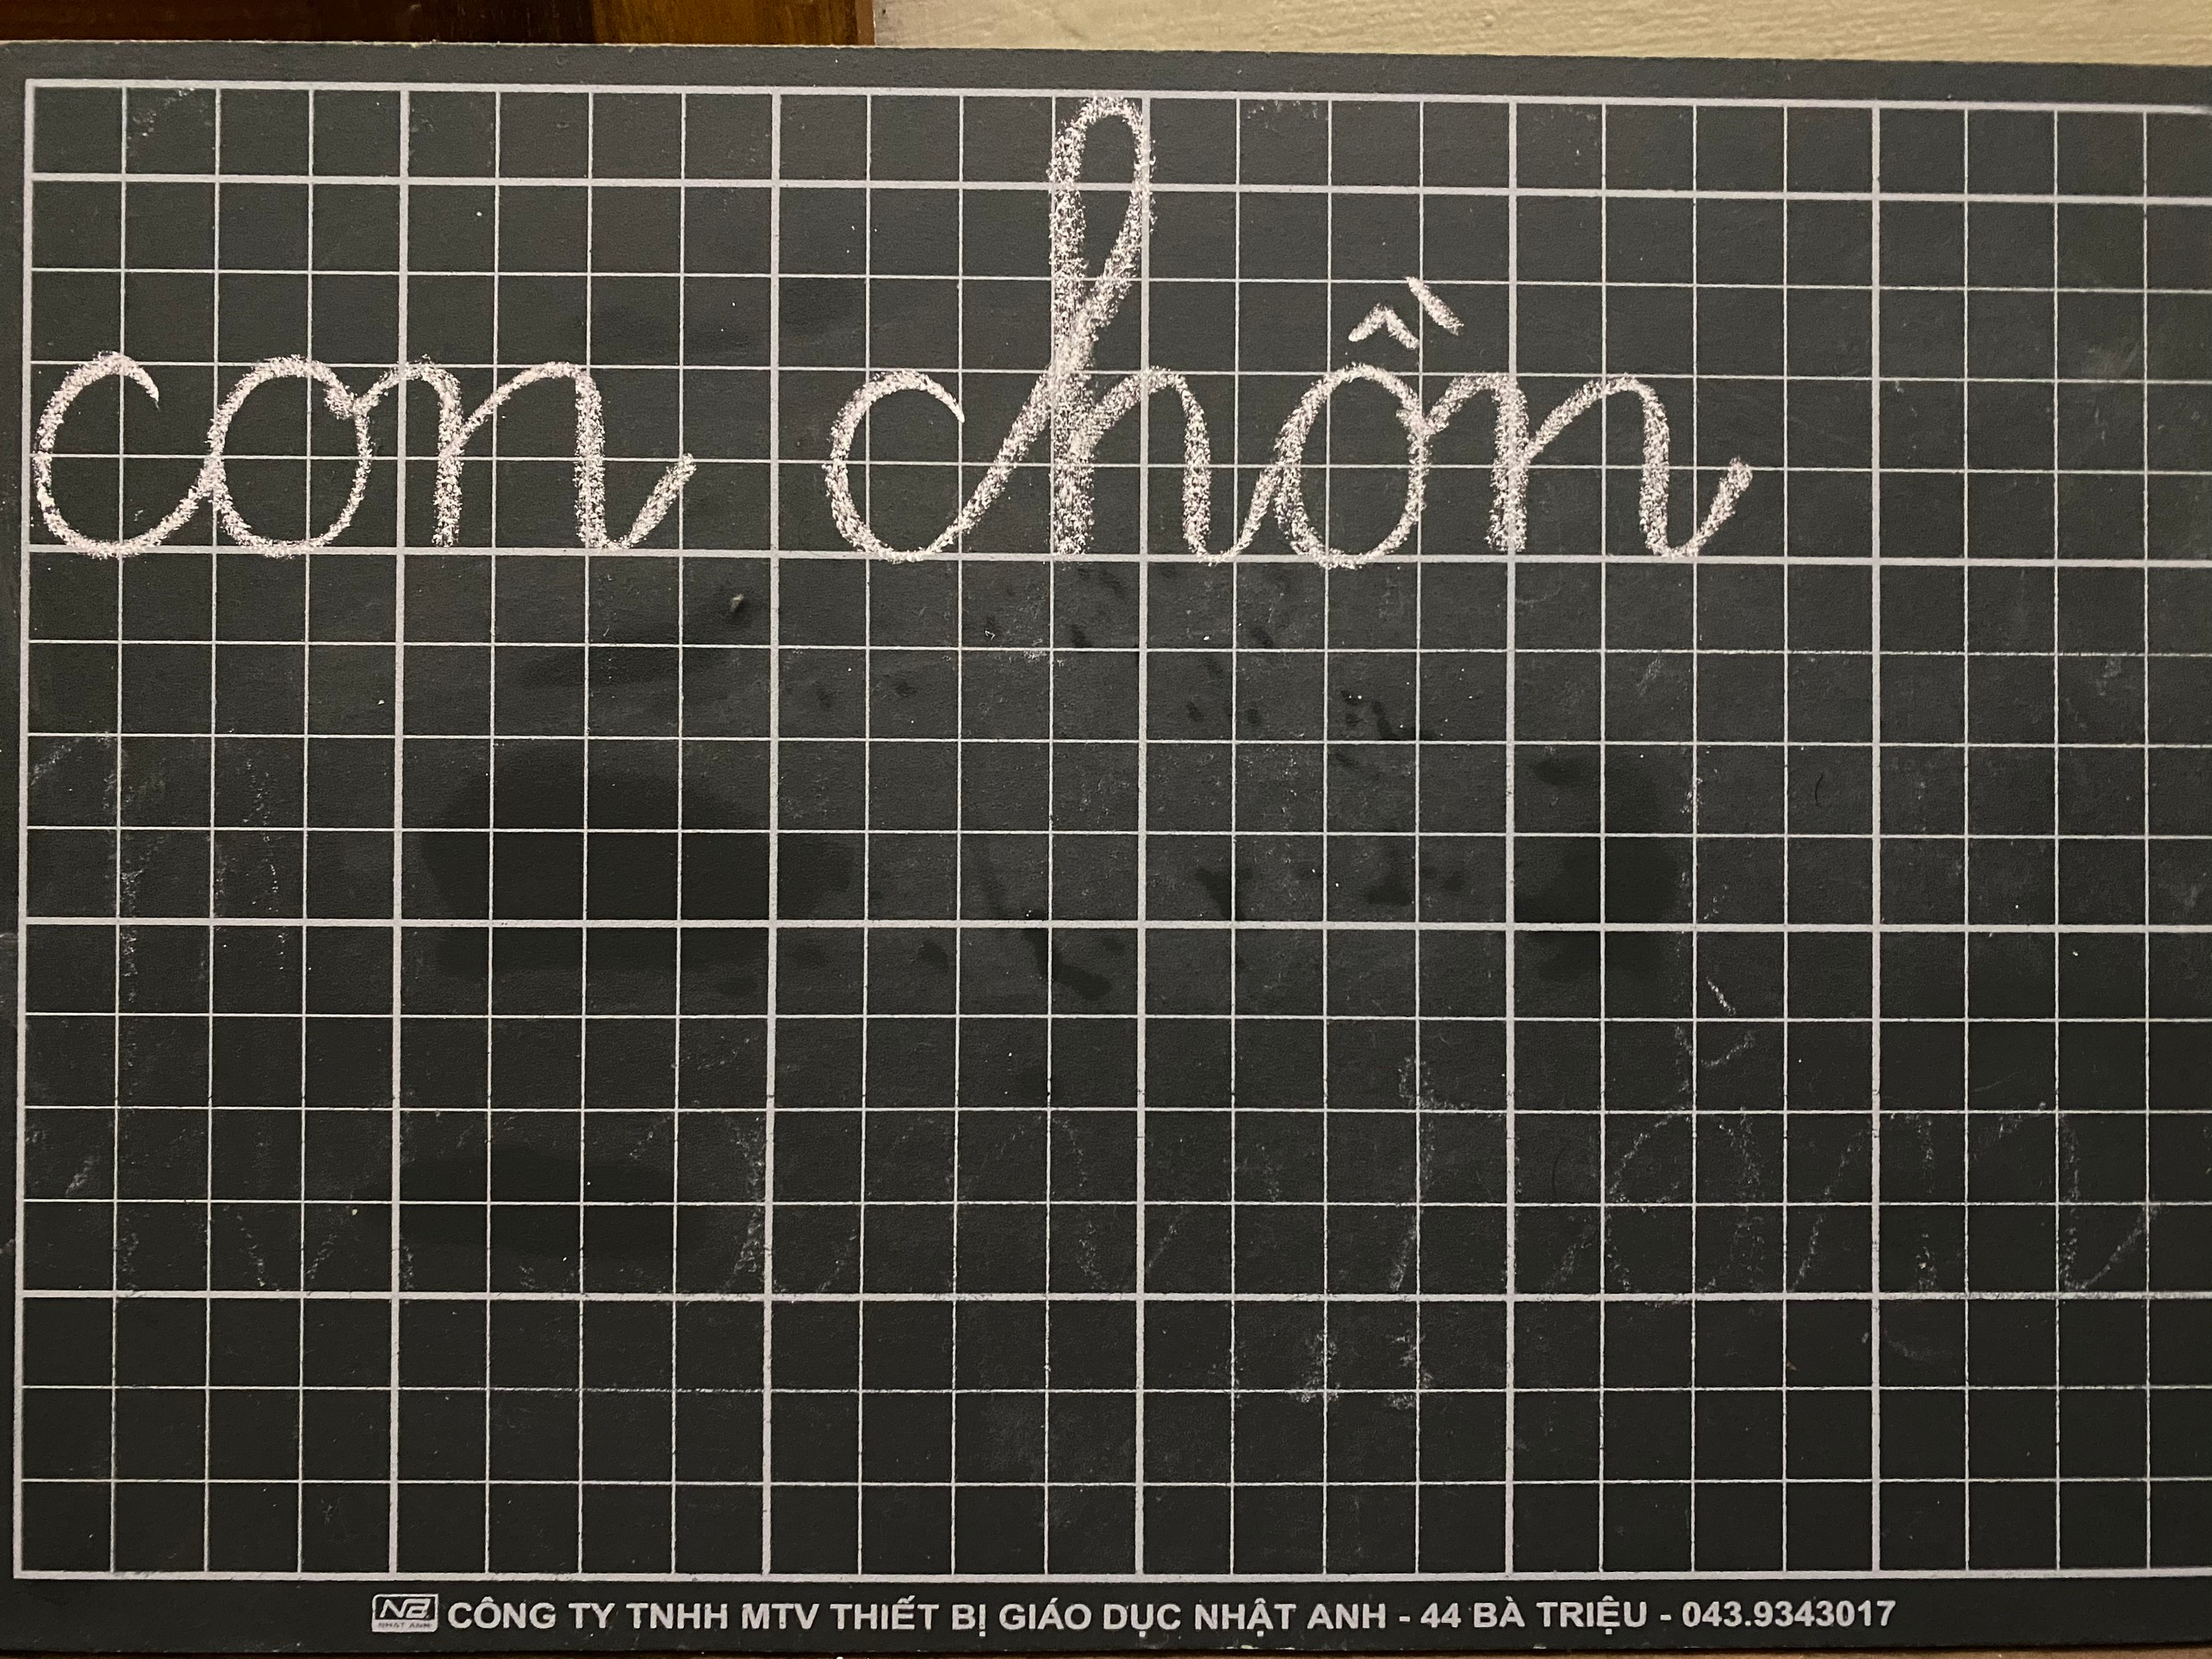 con chồn
NB NHAT ANH CÔNG TY TNHH MTV THIẾT BỊ GIÁO DỤC NHẬT ANH - 44 BÀ TRIỆU - 043.9343017